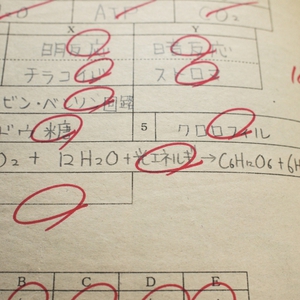 ATP CO₂
X Y
明反応 暗反応
チラコイド ストロマ
ビン・ベンソン回路
ドウ糖 5 クロロフィル
O₂ + 12H₂O+光エネルギ→C₆H₁₂O₆+6H
B C D E